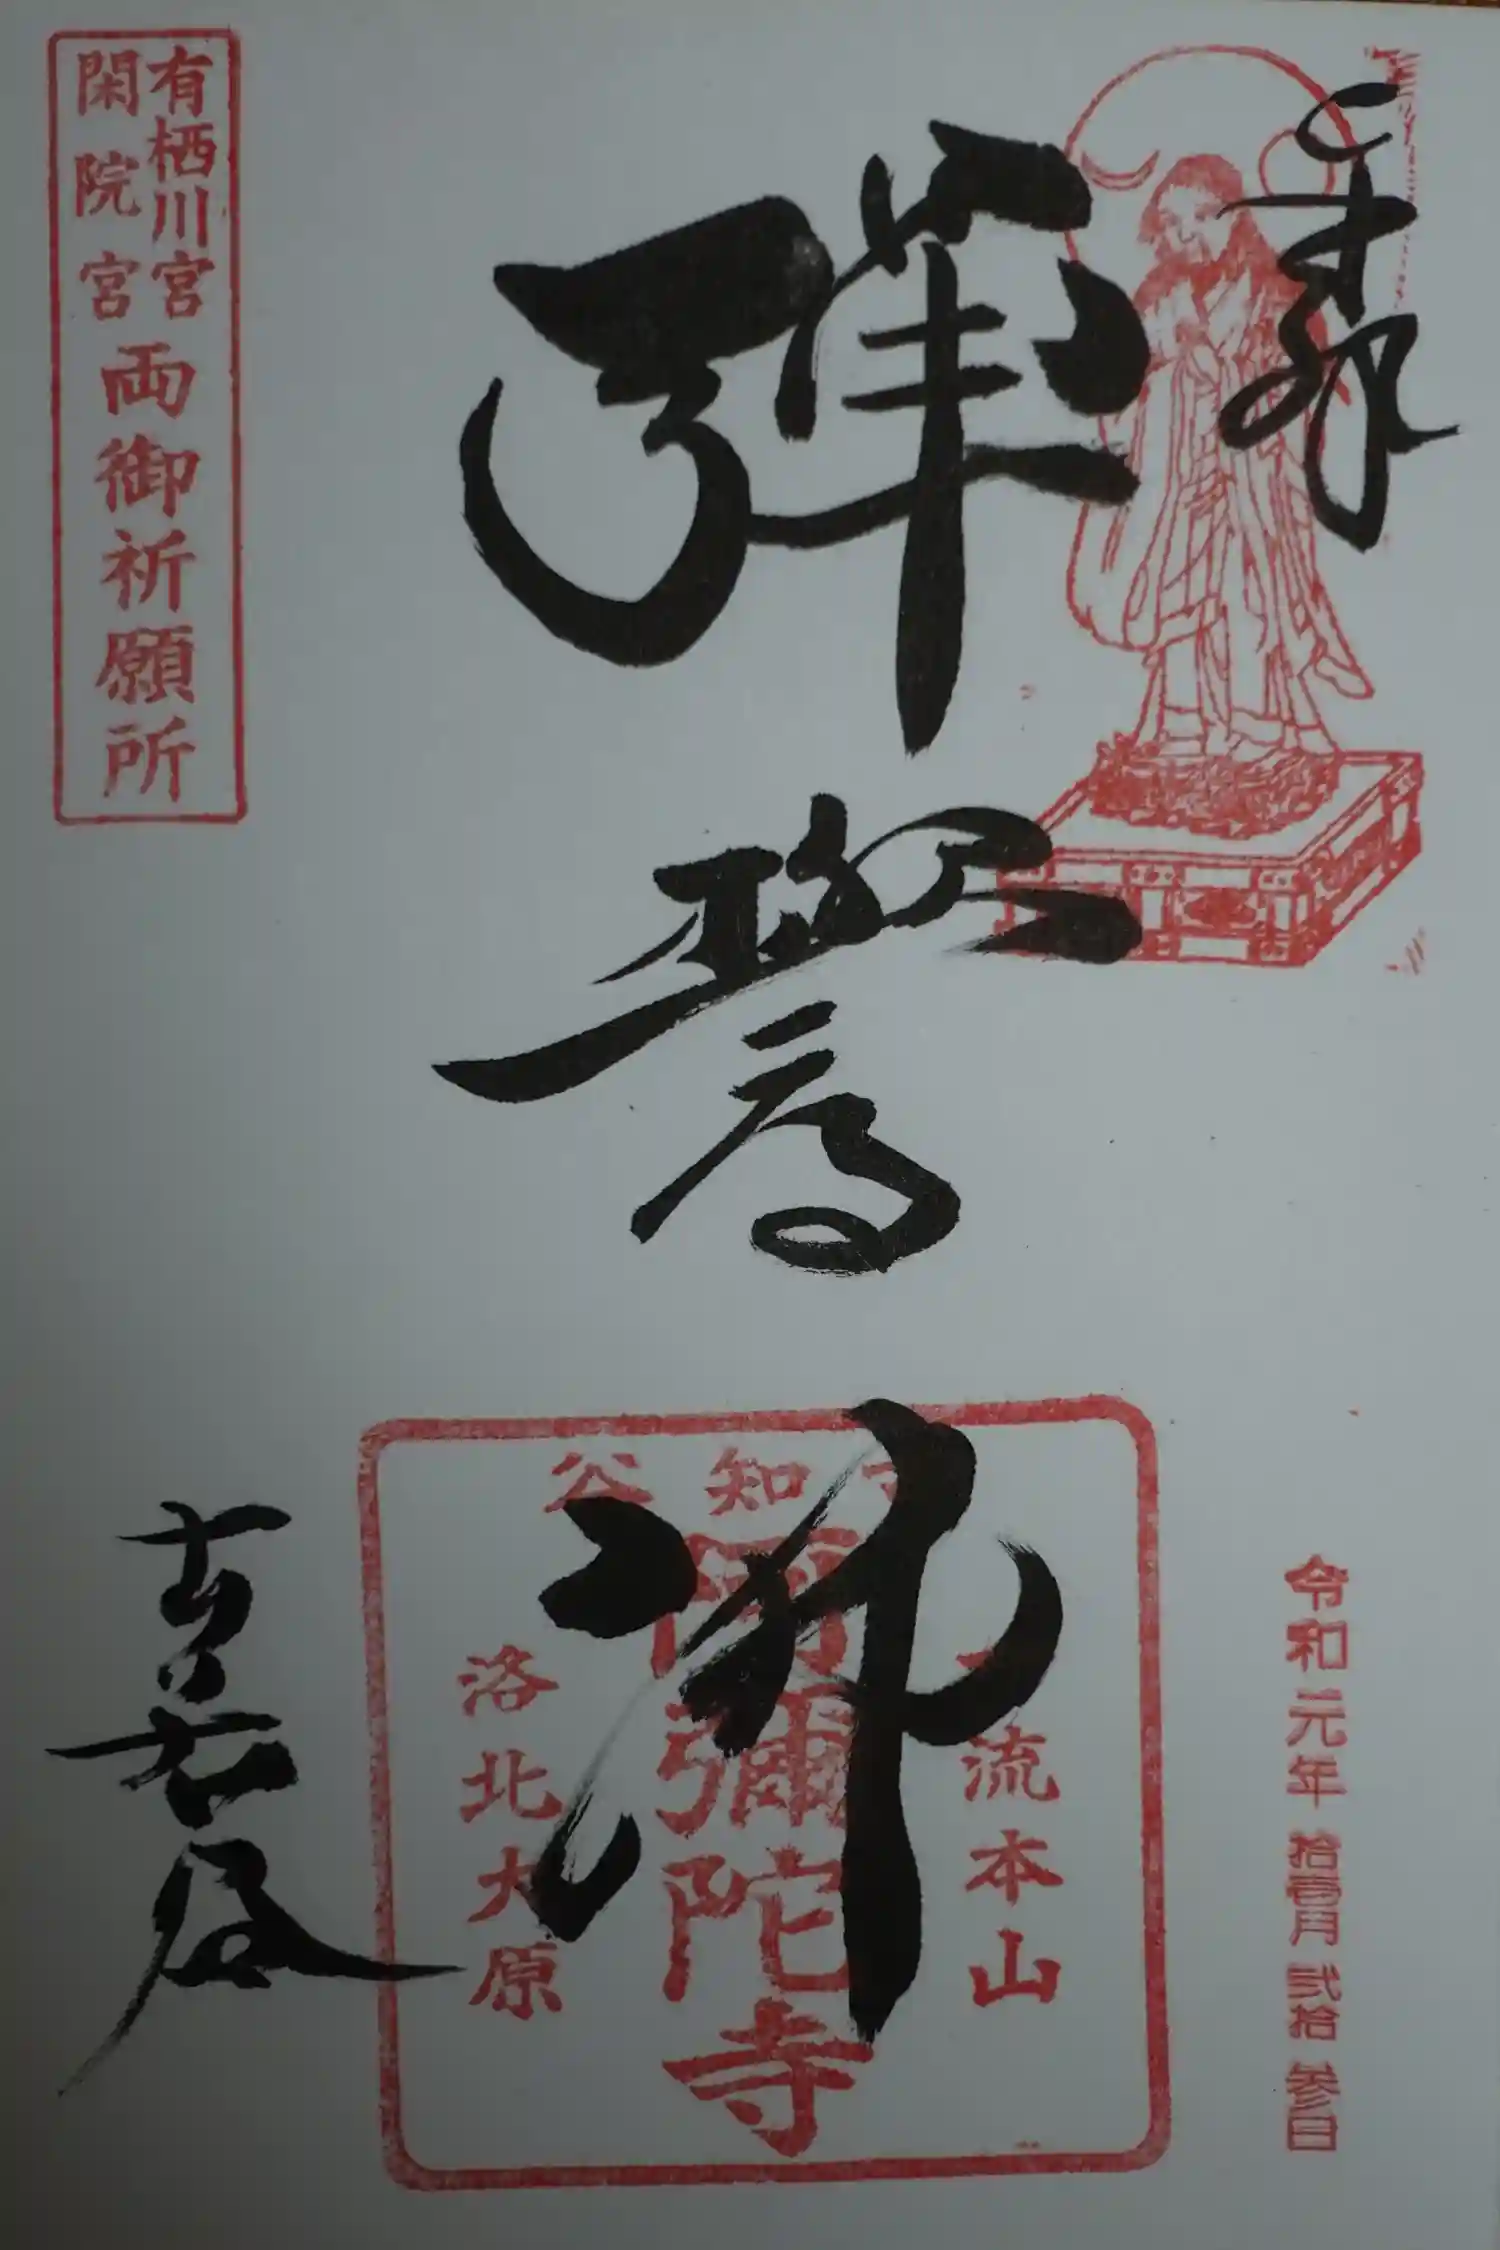 奉拝
令和元年 拾壱月 弐拾 参日
彈誓佛
知谷
流本山
阿彌陀寺
洛北大原
有栖川宮
閑院宮
両御祈願所
古知谷